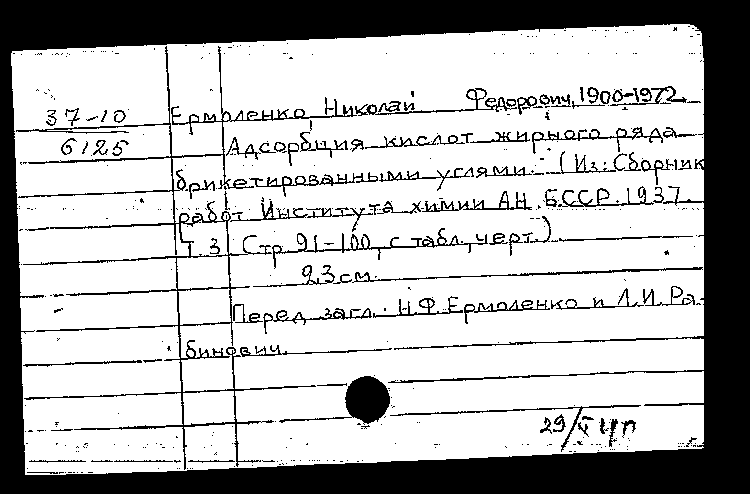 37-10
6125
Ермоленко, Николай Федорович, 1900-1972.
Адсорбция кислот жирного ряда
брикетированными углями. (Из: Сборник
работ Института химии АН БССР. 1937.
Т. 3. Стр. 91-100, с табл., черт.).
23 см.
Перед загл.: Н.Ф. Ермоленко и Л.И. Ра-
бинович.
29/V